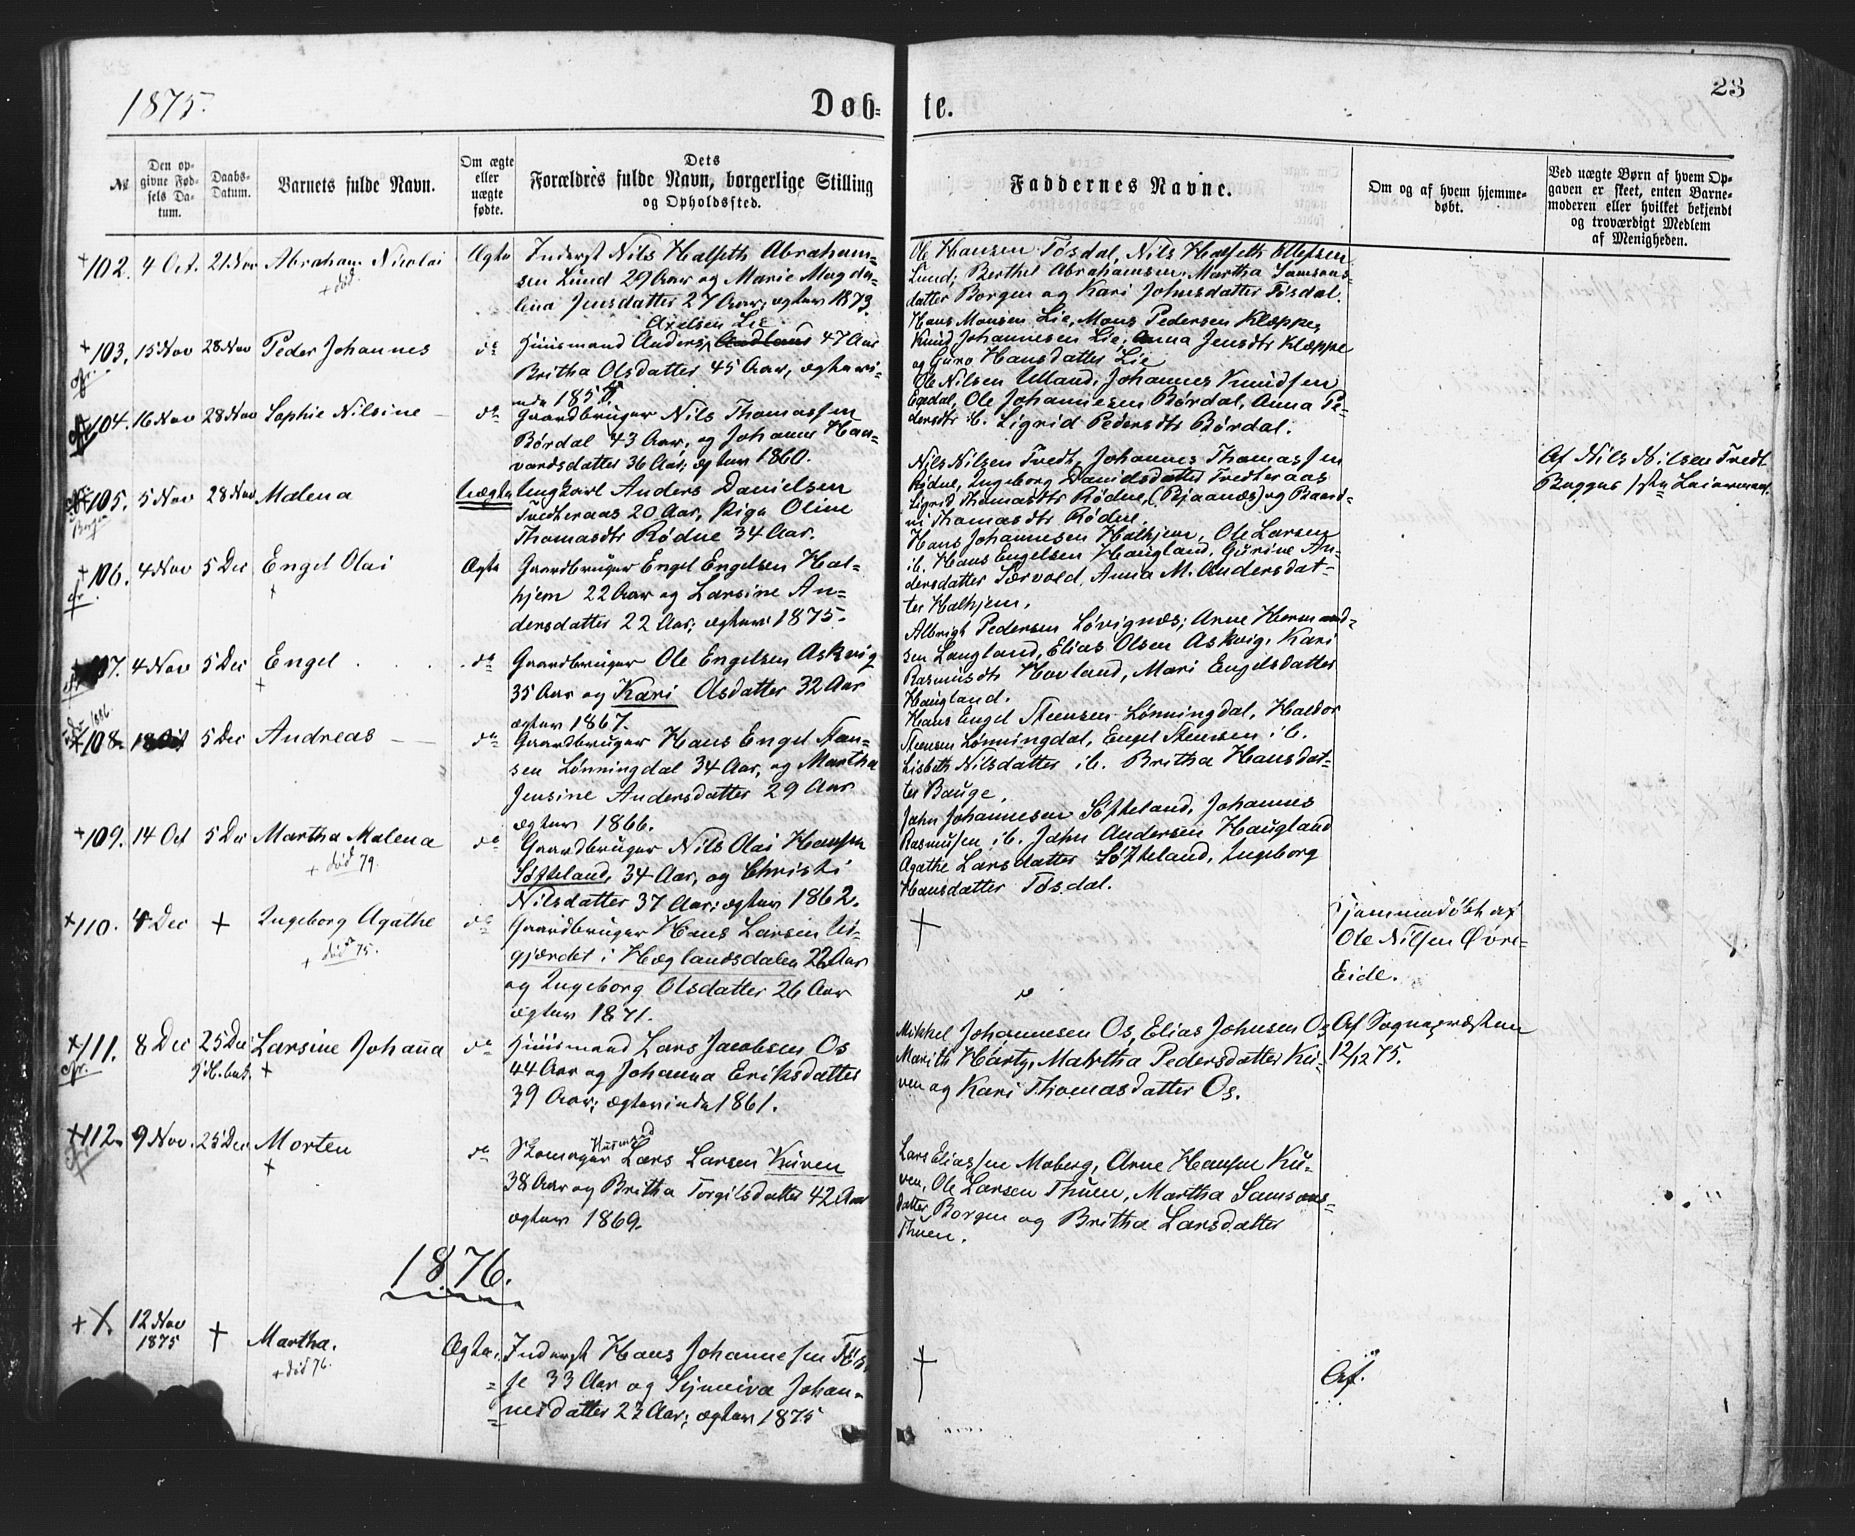 1875.
Døb-
te.
23
№
Den op-
givne Fød-
sels Da-
tum.
Daabs-
Datum.
Barnets fulde Navn.
Om ægte
eller
uægte
fødte.
Dets
Forældres fulde Navn, borgerlige Stilling
og Opholdssted.
Faddernes Navne.
Om og af hvem hjemme-
døbt.
Ved uægte Børn af hvem Op-
gaven er skeet, enten Barne-
moderen eller hvilket bekjendt
og troværdigt Medlem
af Menigheden.
+102. 4 Oct. 21 Nov Abraham Nicolai Ægte
+ död.
Inderst Nils Halfeth Abraham-
sen Lund 29 Aar og Marie Magda-
lena Jensdatter 27 Aar; 1873.
Ole Hansen Tøsdal, Nils Halfeth Ellefsen
Lund, Berthel Abrahamsen, Martha Samsons-
datter Borgen og Kari Johnsdatter Tøsdal.
+103. 15 Nov 28 Nov Peder Johannes do
Axelsen Lie
Huusmand Anders 47 Aar
Britha Olsdatter 45 Aar,
1857.
Hans Monsen Lie, Mons Pedersen Kleppe,
Knud Johannesen Lie, Anna Jensdtr Kleppe
og Guro Hansdatter Lie
104. 16 Nov 28 Nov Sophie Nilsine do
Gaardbruger Nils Thomassen
Børdal 43 Aar, og Johanne Haa-
vardsdatter 36 Aar; 1860.
Ole Nilsen Ulland, Johannes Knudsen
Egdal, Ole Johannesen Børdal, Anna Pe-
dersdtr ib. Sigrid Pedersdtr Børdal.
105. 5 Nov 28 Nov Malena Uægte
Ungkarl Anders Danielsen
Tvedteraas 20 Aar, Pige Oline
Thomasdtr Rødne 34 Aar.
Nils Nilsen Tvedt, Johannes Thomassen
Rødne, Ingeborg Danielsdatter Tvedteraas
Sigrid Thomasdtr Rødne, (Bjaanæs) og Rand-
vi Thomasdtr Rødne.
Af Nils Nilsen Tvedt
+106. 4 Nov 5 Dec Engel Olai Ægte
+
Gaardbruger Engel Engelsen Hal-
hjem 22 Aar og Larsine An-
dersdatter 22 Aar; 1875.
Hans Johannesen Halhjem, Ole Larsen
ib. Hans Engelsen Haugland, Gurine An-
dersdatter Særvold, Anna M. Andersdat-
ter Halhjem.
107. 4 Nov 5 Dec Engel do
+
Gaardbruger Ole Engelsen Askvig
35 Aar og Kari Olsdatter 32 Aar
1867.
Albrigt Pedersen Løvignæs; Arne Hermand-
sen Langland, Elias Olsen Askvig, Kari
Rasmusdtr Hovland, Mari Engelsdatter
Haugland.
1886.
108. 18 Oct 5 Dec Andreas do
Gaardbruger Hans Engel Steen-
sen Lønningdal 34 Aar, og Martha
Jensine Andersdatter 29 Aar
1866.
Hans Engel Steensen Lønningdal, Haldor
Steensen Lønningdal, Engel Steensen ib.
Lisbeth Nilsdatter ib. Britha Hansdat-
ter Bauge.
+109. 14 Oct 5 Dec Martha Malena do
+ död 79.
Gaardbruger Nils Olai Hansen
Søfteland, 34 Aar, og Christi
Nilsdatter 37 Aar; 1862.
John Johannesen Søfteland, Johannes
Rasmusen ib. John Andersen Haugland
Agathe Larsdatter Søfteland, Ingeborg
Hansdatter Tøsdal.
+110. 4 Dec + Ingeborg Agathe do
+ död 75.
Gaardbruger Hans Larsen Ud-
gjærdet i Hæglandsdalen 22 Aar
og Ingeborg Olsdatter 26 Aar
1871.
+
Hjemmedøbt af
Ole Nilsen Øvre-
Eide.
+111. 8 Dec 25 Dec Larsine Johanna do
+
Huusmand Lars Jacobsen Os
44 Aar og Johanna Eriksdatter
39 Aar; 1861.
Mikkel Johannesen Os, Elias Johnsen Os
Marith Harty, Martha Pedersdatter Ku-
ven og Kari Thomasdatter Os.
Af Sognepræsten
12/12 75.
+112. 9 Nov. 25 Dec Morten do
+
Huusmand
Skomager Lars Larsen Kuven
38 Aar og Britha Torgilsdatter 42 Aar
1869.
Lars Eliassen Moberg, Arne Hansen Ku-
ven, Ole Larsen Thuen, Martha Samsons-
datter Borgen og Britha Larsdatter
Thuen.
1876.
+1. 12 Nov
1875 + Martha. Ægte.
+ död 76.
Inderst Hans Johannesen
33 Aar og Synneva Johan-
nesdatter 23 Aar; 1875
+
Af.